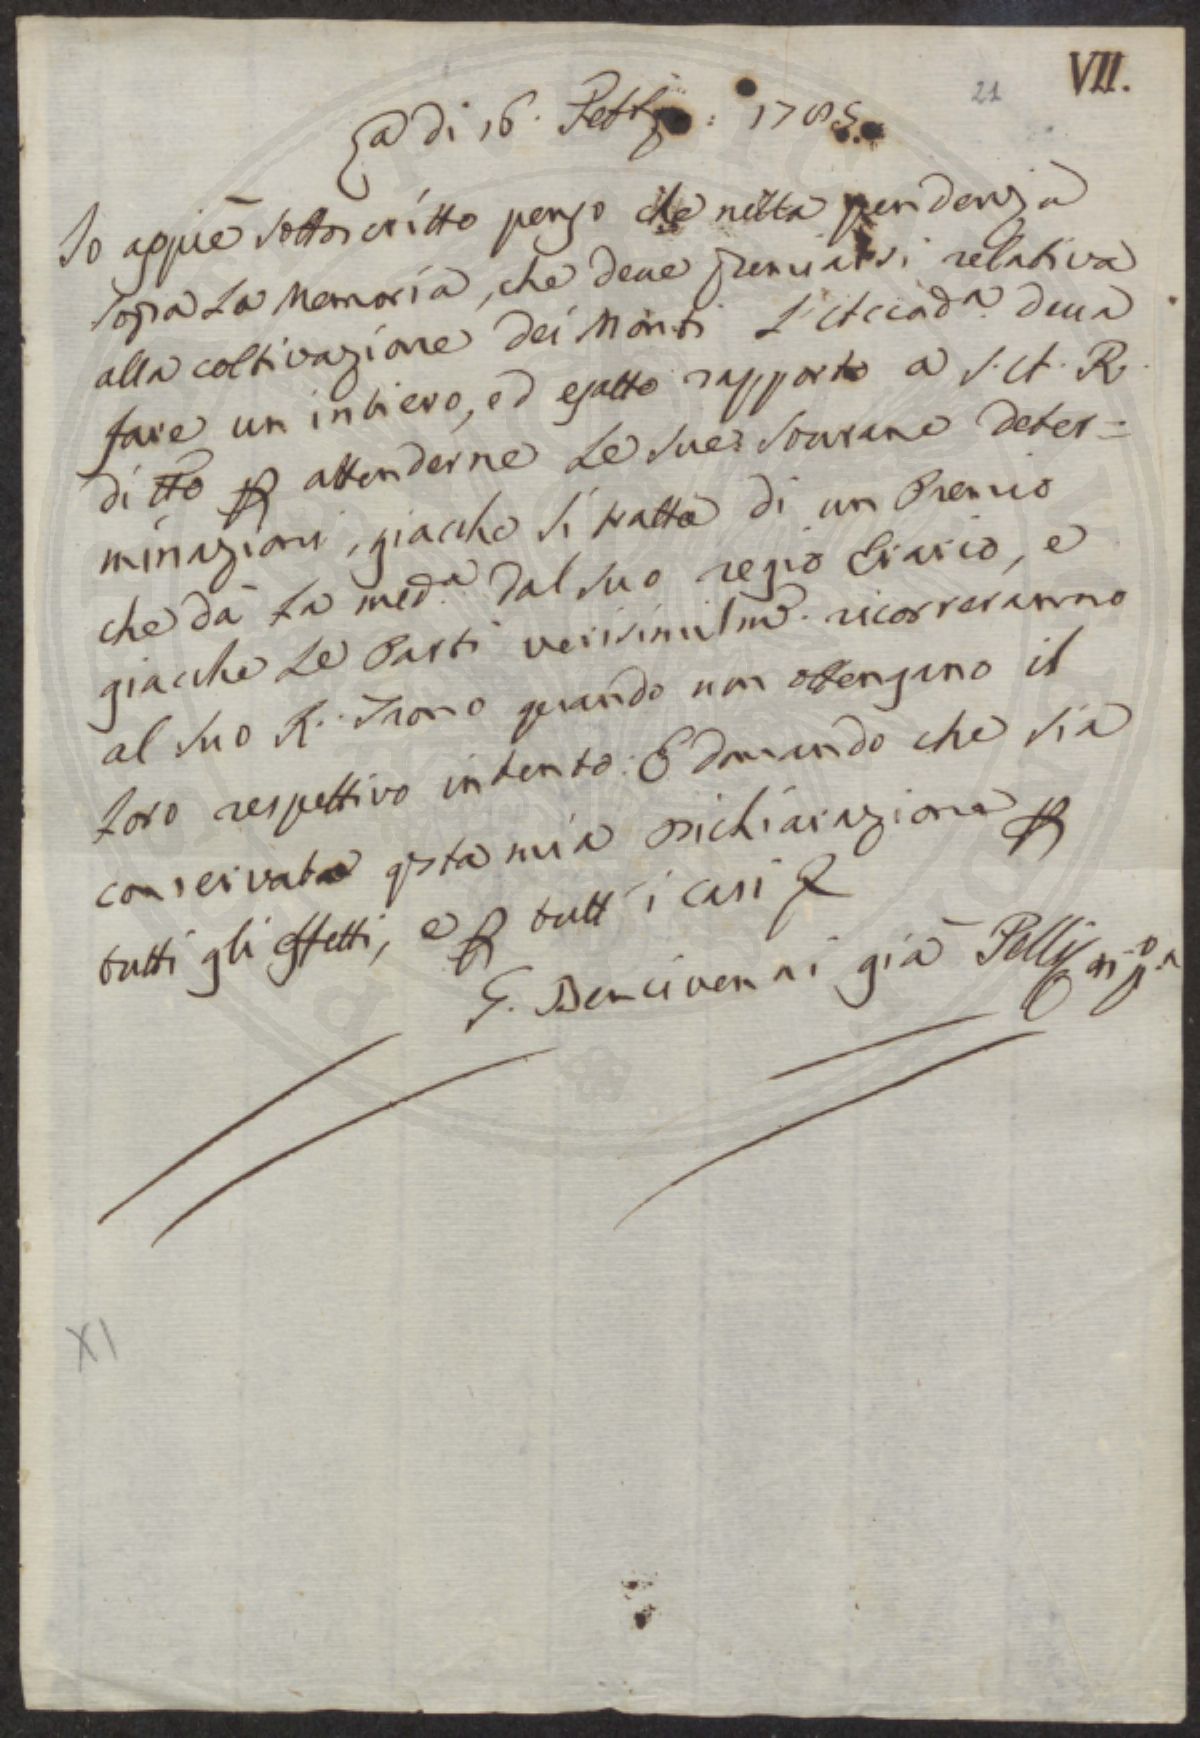 VII.
21
a di 16. Sett: 1785.
Io appiè sottoscritto penso che nella pendenza
sopra la Memoria, che deve premiarsi relativa
alla coltivazione dei Monti L'Accad.a deva
fare un intiero, ed esatto rapporto a S. A. R.
di tto p attenderne le sue sovrane deter=
minazioni, giacche si tratta di un Premio
che dà la med.a dal suo regio Erario, e
giacche le Parti verisimilm.e ricorreranno
al suo R. Trono quando non ottengano il
loro respettivo intento. E domando che sia
conservata qsta mia dichiarazione p
tutti gli effetti, e p tutt'i casi
G. Bencivenni già Pelli m.o p.a
XI